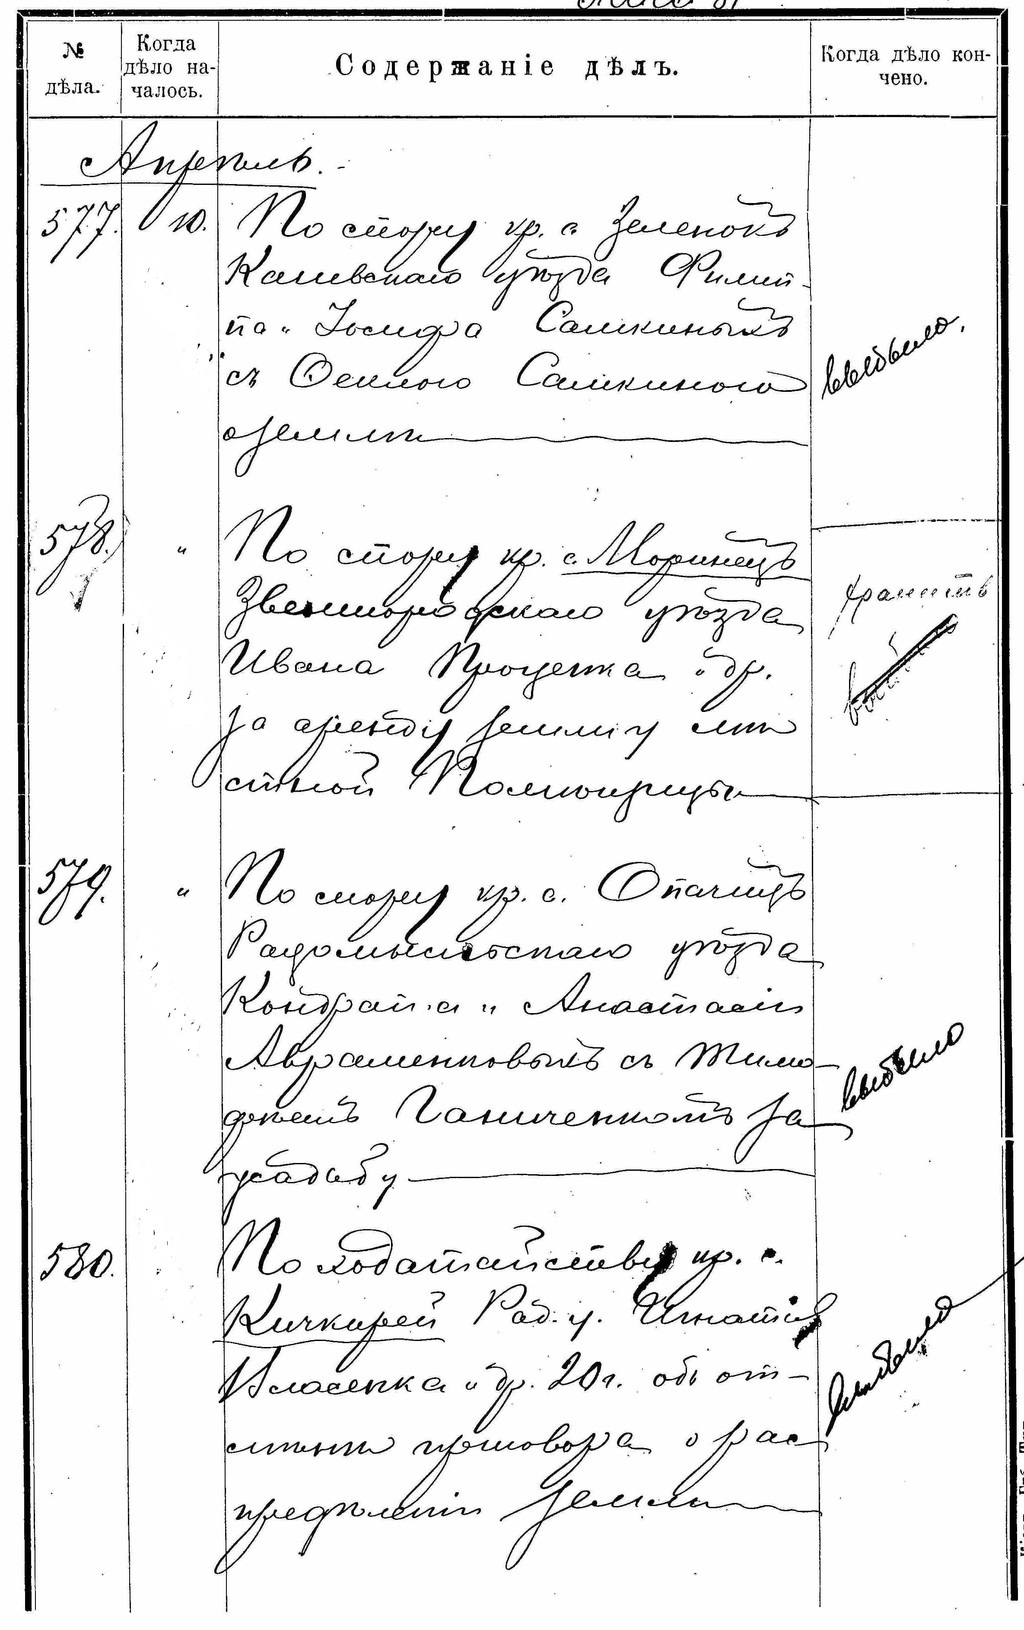 № дѣла.
Когда дѣло на-
чалось.
Содержаніе дѣлъ.
Когда дѣло кон-
чено.
Апрель.
577. 10. По спору кр. с. Зеленокъ
Каневскаго уѣзда Филип-
па и Іосифа Сашкиныхъ
съ Феклою Сашкиною
о землѣ
выбыло.
578. " По спору кр. с. Моринецъ
Звенигородскаго уѣзда
Ивана Проценка и др.
за аренду земли у мѣ
стной помѣщицы
хранить
579. " По спору кр. с. Опачичъ
Радомысльскаго уѣзда
Кондрата и Анастасіи
Авраменковыхъ съ Тимо-
феемъ Ганиченкомъ за
усадьбу
выбыло
580. По ходатайству кр. с.
Кичкирей Рад. у. Игнатія
Власенка и др. 20 г. объ от-
мѣнѣ приговора о рас
предѣленіи земли
выбыло